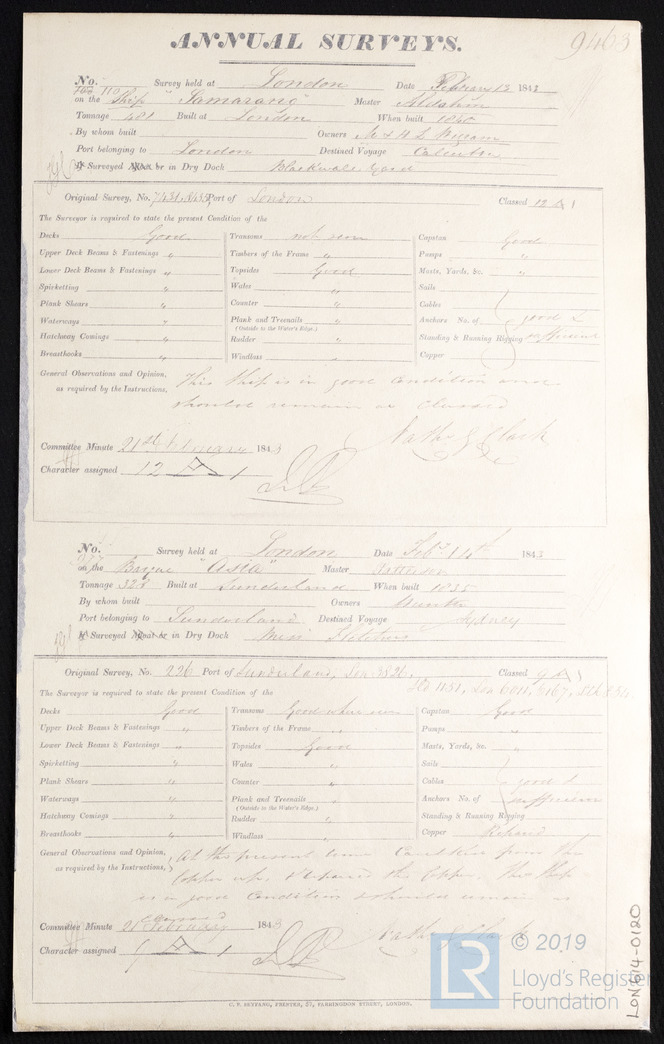 ANNUAL SURVEYS.
9463
No. 110 Survey held at London Date February 13 1843
on the Ship "Samarang" Master
Tonnage 401 Built at London When built
By whom built Owners
Port belonging to London Destined Voyage Calcutta
If Surveyed Afloat or in Dry Dock Blackwall Yard
Original Survey, No. Port of London Classed 12 A 1
The Surveyor is required to state the present Condition of the
Decks Good Transoms not seen Capstan Good
Upper Deck Beams & Fastenings " Timbers of the Frame " Pumps "
Lower Deck Beams & Fastenings " Topsides Good Masts, Yards, &c. "
Spirketting " Wales " Sails
Plank Shears " Counter " Cables
Waterways " Plank and Treenails " Anchors No. of good &
(Outside to the Water's Edge.)
Hatchway Comings " Rudder " Standing & Running Rigging sufficient
Breasthooks " Windlass " Copper
General Observations and Opinion, This ship is in good condition and
as required by the Instructions, should remain as classed
Nathl. Clark
Committee Minute 21st February 1843
Character assigned 12 A 1
No. Survey held at London Date Feby. 14th 1843
on the Barque "Asia" Master
Tonnage 328 Built at Sunderland When built 1835
By whom built Owners Hunter
Port belonging to Sunderland Destined Voyage Sydney
If Surveyed Afloat or in Dry Dock Messrs Fletchers
Original Survey, No. 226 Port of Sunderland, Classed 9 A 1
The Surveyor is required to state the present Condition of the
Decks Good Transoms Good where seen Capstan Good
Upper Deck Beams & Fastenings " Timbers of the Frame " Pumps "
Lower Deck Beams & Fastenings " Topsides Good Masts, Yards, &c. "
Spirketting " Wales " Sails
Plank Shears " Counter " Cables good &
Waterways " Plank and Treenails " Anchors No. of sufficient
(Outside to the Water's Edge.)
Hatchway Comings " Rudder " Standing & Running Rigging
Breasthooks " Windlass " Copper Repaired
General Observations and Opinion, At the present time Caulked from the
as required by the Instructions, Copper up, & repaired the Copper. This Ship
is in good condition & should remain as
classed
Committee Minute 21 February 1843
Character assigned 9 A 1
C. F. SEYFANG, PRINTER, 57, FARRINGDON STREET, LONDON.
LON614-0120
LR © 2019
Lloyd's Register
Foundation